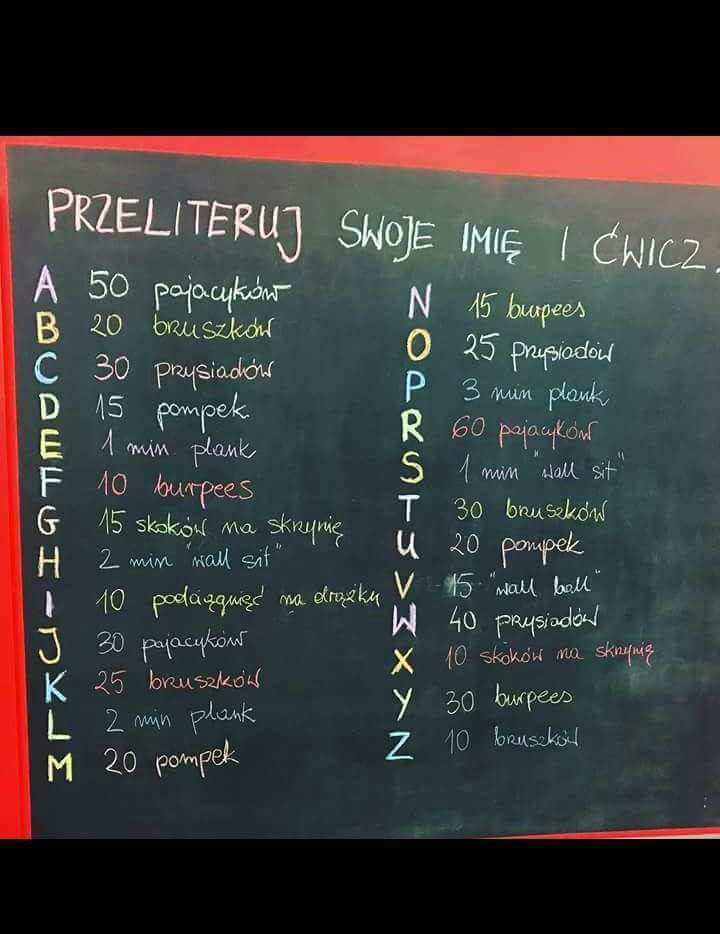 PRZELITERUJ SWOJE IMIĘ I ĆWICZ.
A 50 pajacyków
B 20 bruszków
C 30 przysiadów
D 15 pompek
E 1 min plank
F 10 burpees
G 15 skoków na skrzynię
H 2 min "wall sit"
I 10 podciągnięć na drążku
J 30 pajacyków
K 25 bruszków
L 2 min plank
M 20 pompek
N 15 burpees
O 25 przysiadów
P 3 min plank
R 60 pajacyków
S 1 min "wall sit"
T 30 bruszków
U 20 pompek
V 15 "wall ball"
W 40 przysiadów
X 10 skoków na skrzynię
Y 30 burpees
Z 10 bruszków